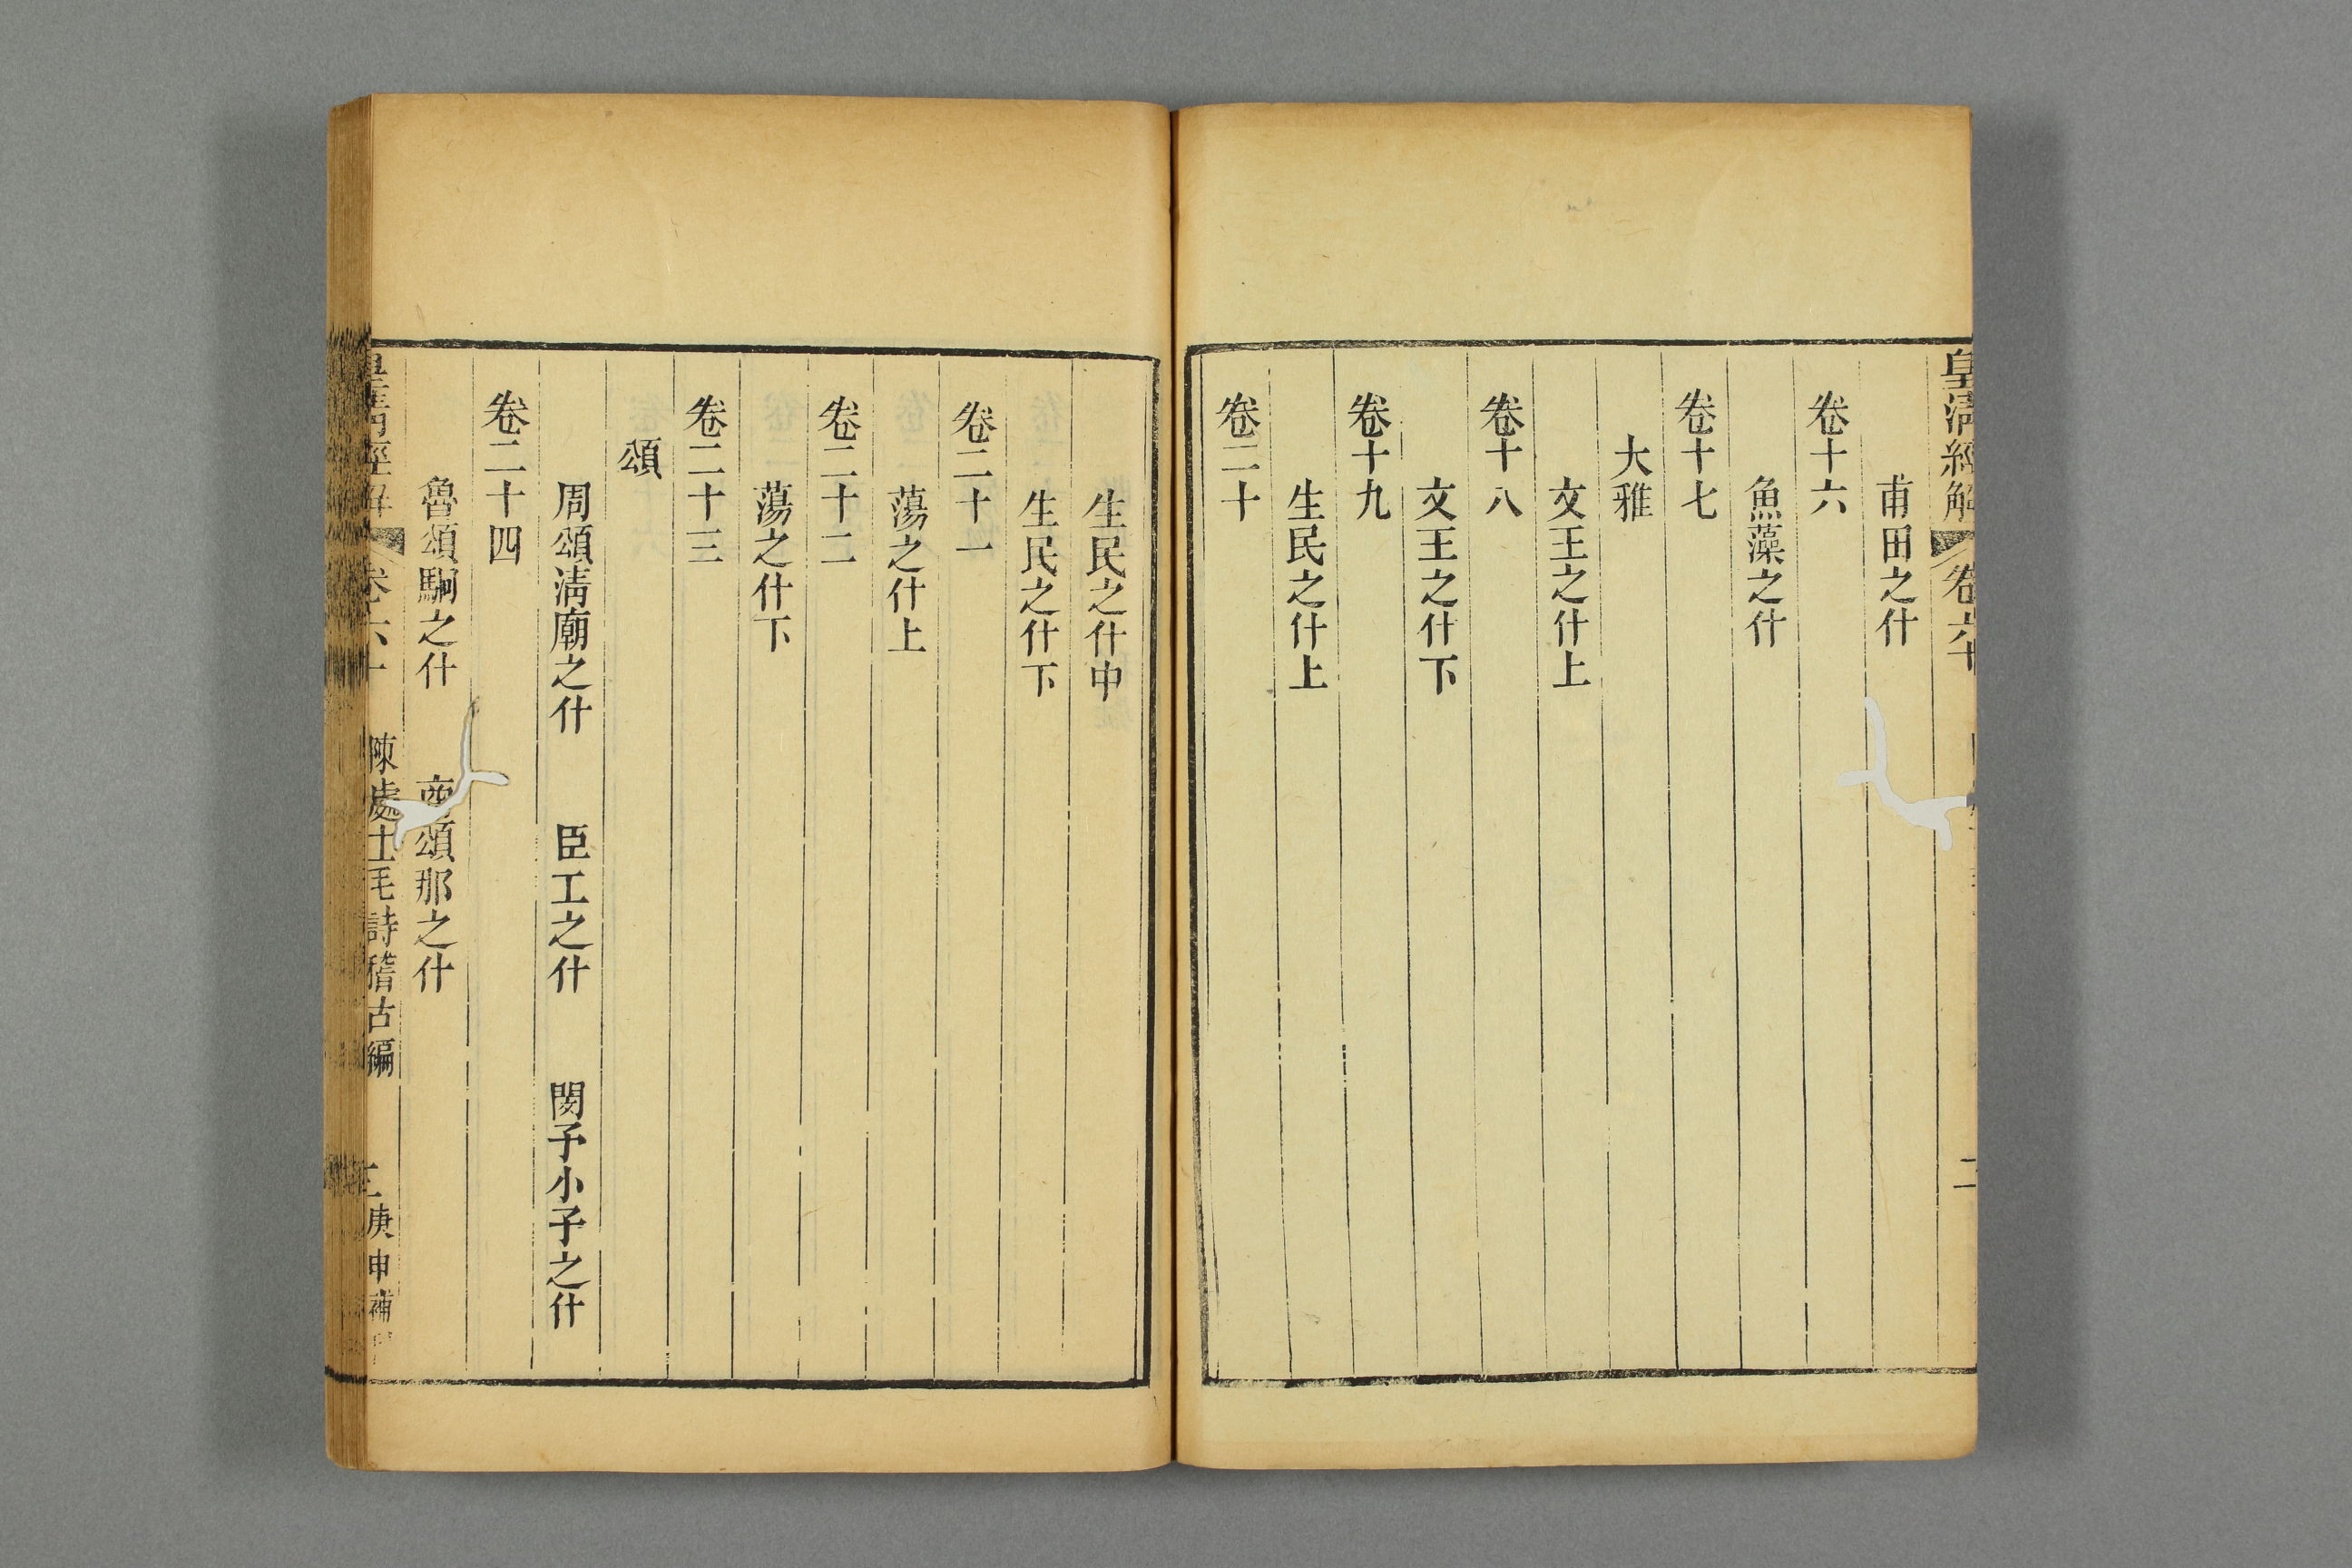 皇清經解 卷六十 二
甫田之什
卷十六
魚藻之什
卷十七
大雅
文王之什上
卷十八
文王之什下
卷十九
生民之什上
卷二十
生民之什中
生民之什下
卷二十一
蕩之什上
卷二十二
蕩之什下
卷二十三
頌
周頌清廟之什 臣工之什 閔予小子之什
卷二十四
魯頌駉之什 商頌那之什
皇清經解 卷六十 陳處士毛詩稽古編 三 庚申補刊